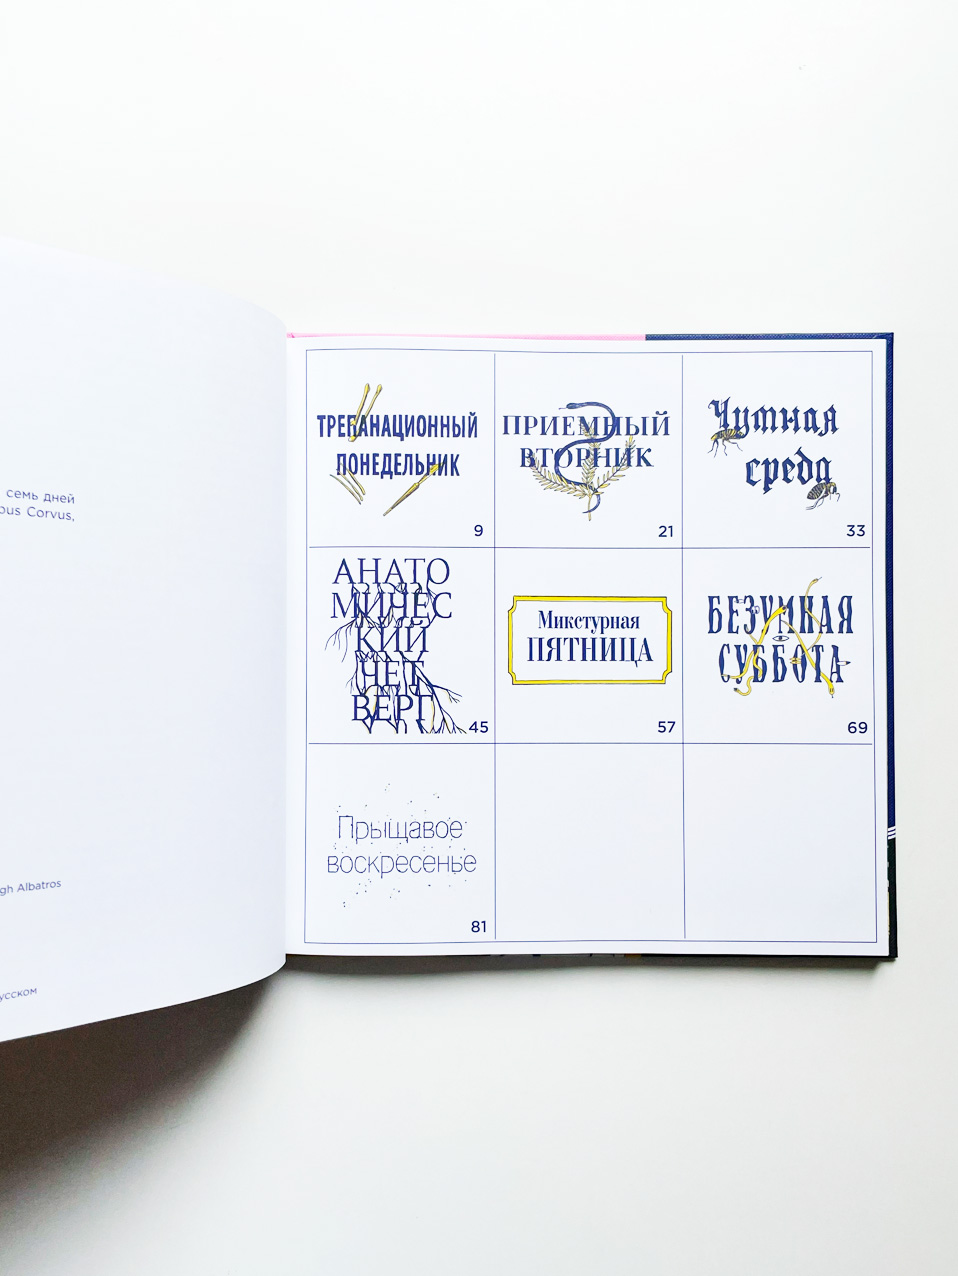 семь дней
Corvus,
Albatros
ТРЕПАНАЦИОННЫЙ
ПОНЕДЕЛЬНИК
9
ПРИЕМНЫЙ
ВТОРНИК
21
Чумная
среда
33
АНАТО
МИЧЕС
КИЙ
ЧЕТ
ВЕРГ
45
Микстурная
ПЯТНИЦА
57
БЕЗУМНАЯ
СУББОТА
69
Прыщавое
воскресенье
81